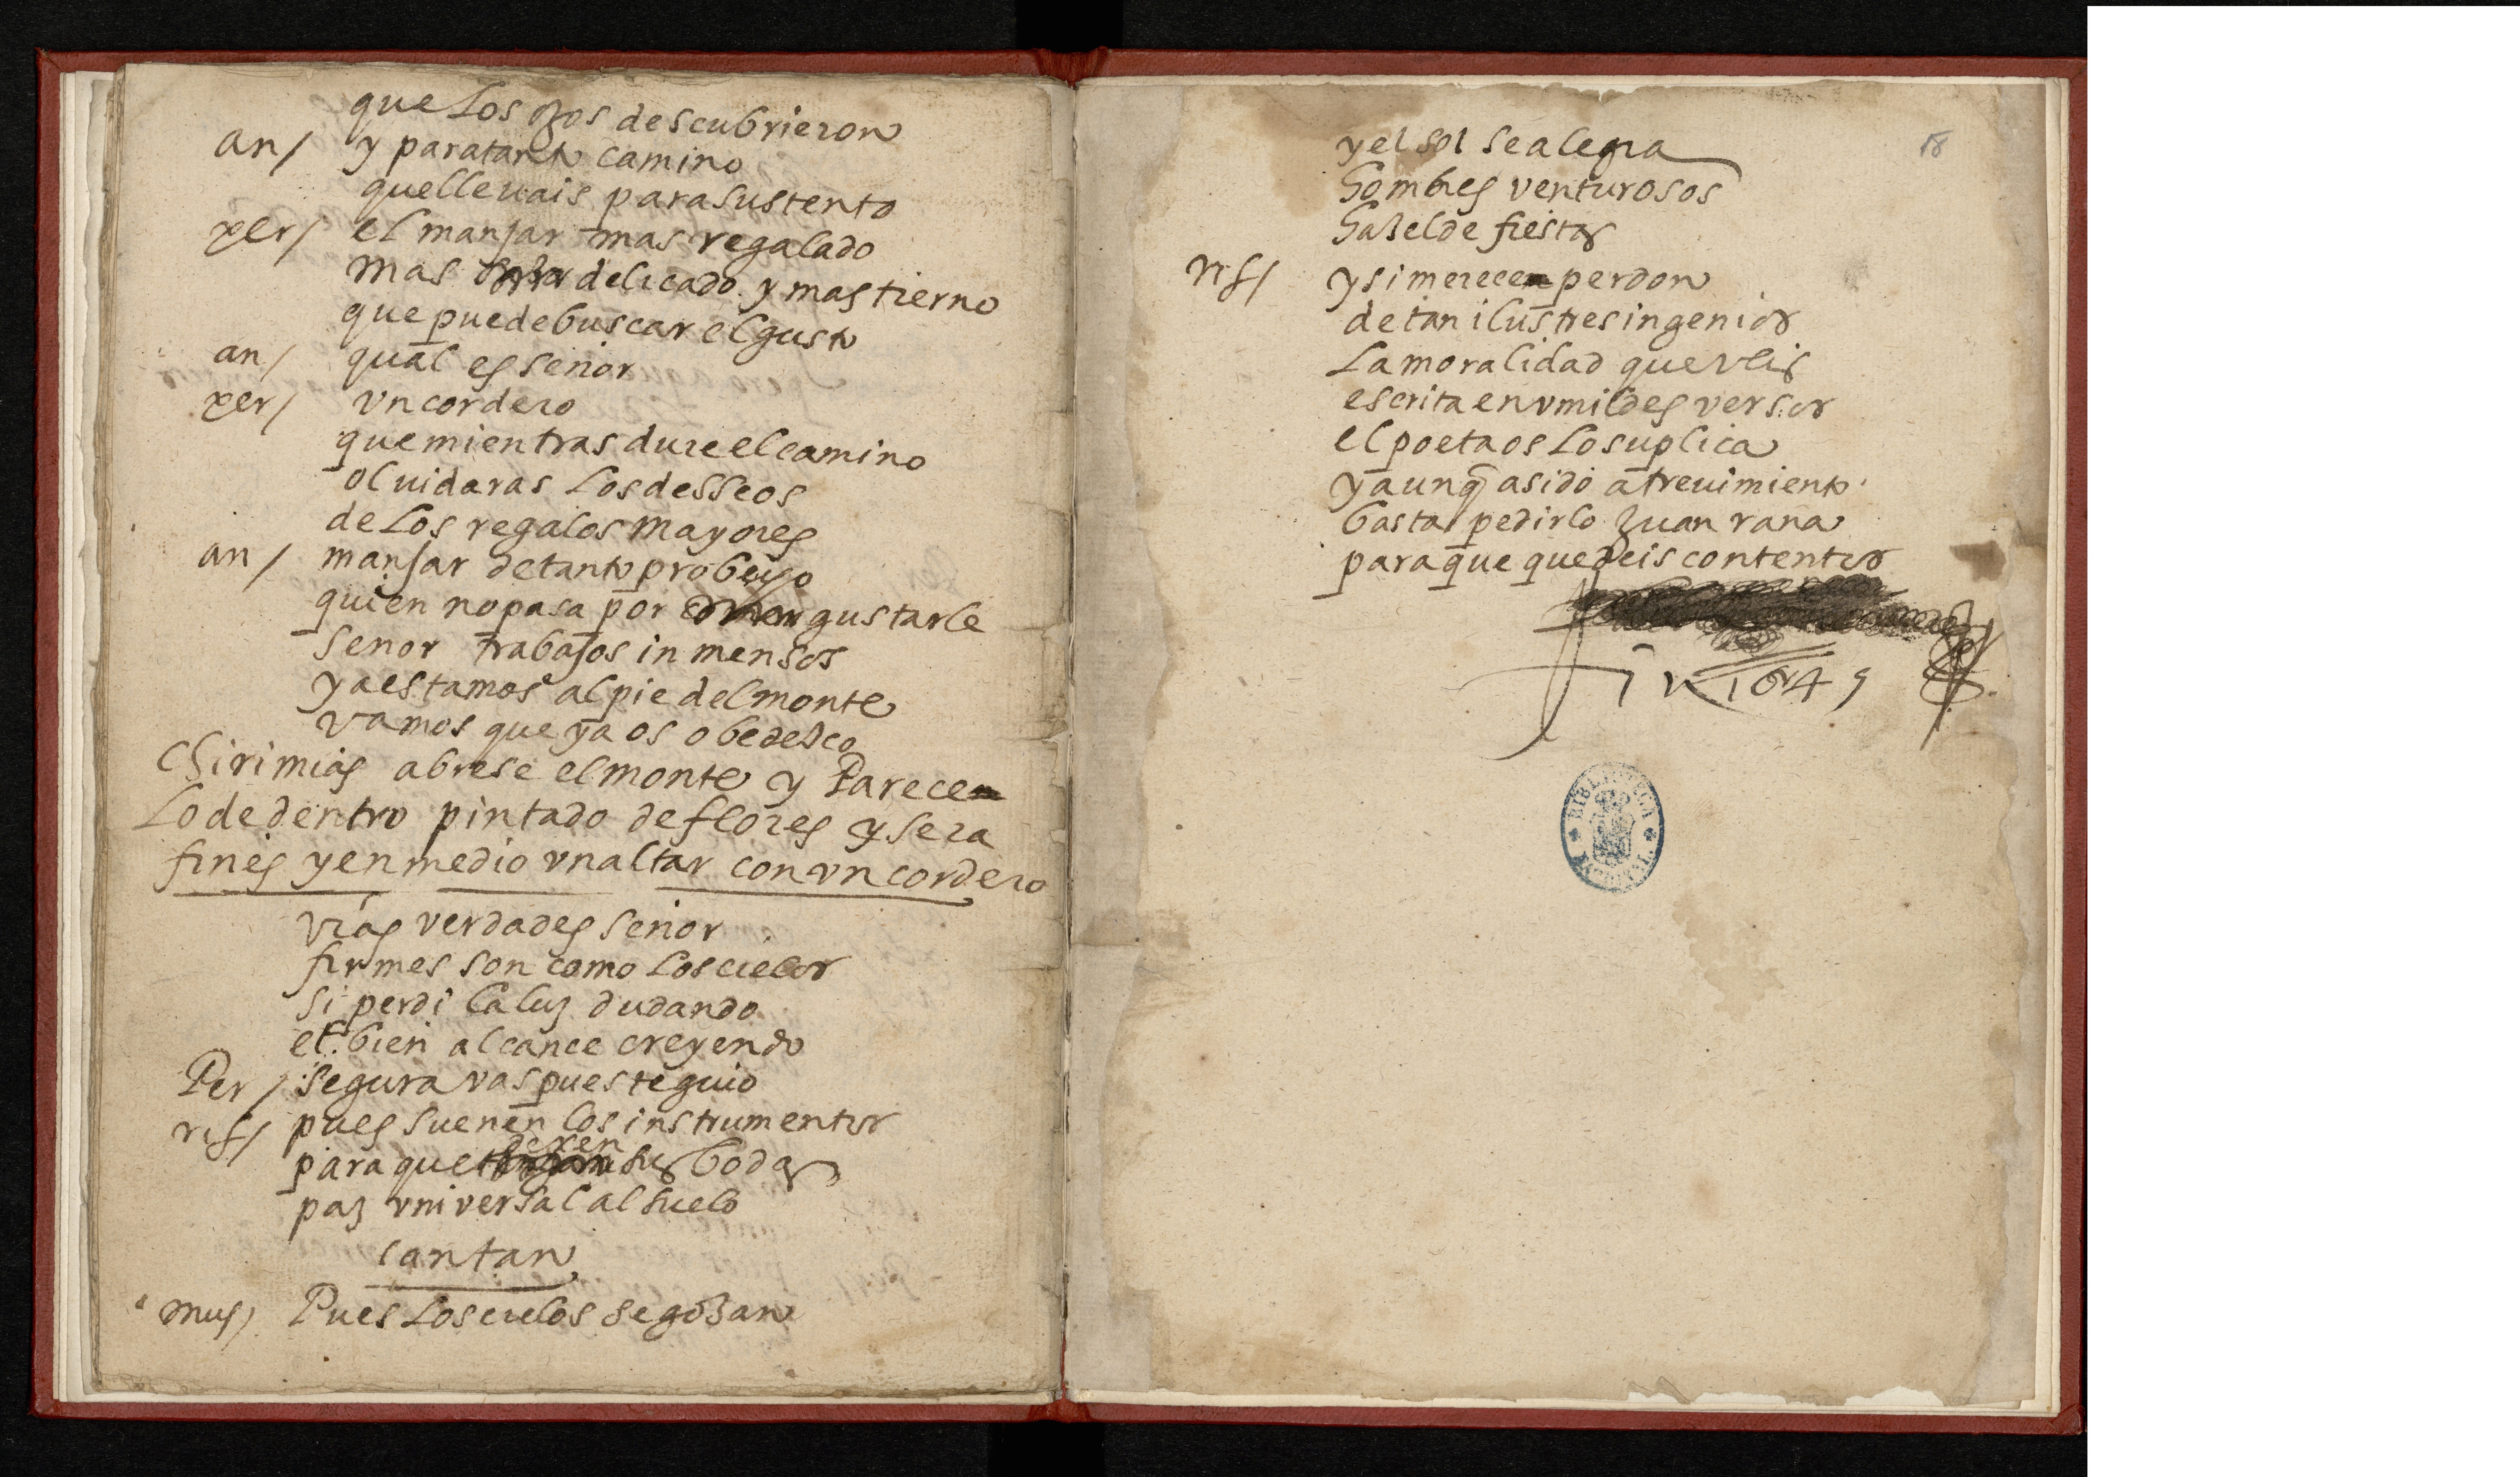 que los ojos descubrieron
an/ y para tanto camino
que lleuais para sustento
per/ el manjar mas regalado
mas delicado y mas tierno
que puede buscar el gusto
an/ qual es señor
per/ vn cordero
que mientras dure el camino
oluidaras los desseos
de los regalos mayores
an/ manjar de tanto probecho
quien no pasa por gustarle
señor trabajos inmensos
ya estamos al pie del monte
vamos que ya os obedesco
Chirimias abrese el monte y Parece
lo de dentro pintado de flores y sera
fines y en medio vn altar con vn cordero
vras verdades señor
firmes son como los cielos
si perdi la luz dudando
el bien alcance creyendo
Per/ segura vas pues te guio
ris/ pues suenen los instrumentos
para que dexen sus bodas
paz vniversal al suelo
cantan
mus/ Pues los cielos se gozan
18
y el sol se alegra
hombres venturosos
hazelde fiestas
ris/ y si merece perdon
de tan ilustres ingenios
la moralidad que veis
escrita en vmildes versos
el poeta os lo suplica
y aunq a sido atreuimiento
basta pedirlo Juan rana
para que quedeis contentos
Fin 1649
BIBLIOTECA NACIONAL